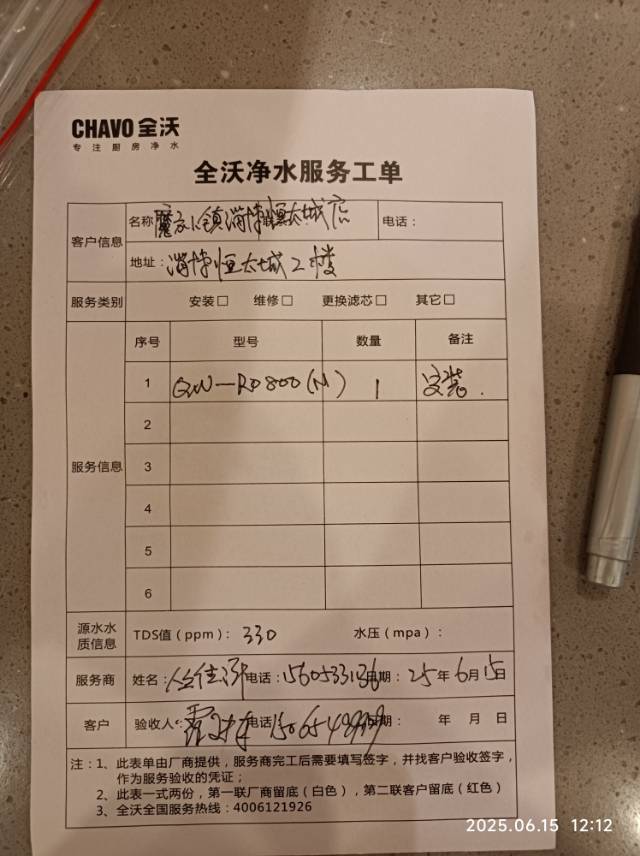 CHAVO 全沃
专注厨房净水
全沃净水服务工单
客户信息 名称 淄博恒太城店 电话：
地址：淄博恒太城2楼
服务类别 安装□ 维修□ 更换滤芯□ 其它□
服务信息 序号 型号 数量 备注
1 QW-RO800(M) 1 安装.
2
3
4
5
6
源水水质信息 TDS值（ppm）：330 水压（mpa）：
服务商 姓名： 电话： 期：25年6月15日
客户 验收人： 电话 期： 年 月 日
注：1、此表单由厂商提供，服务商完工后需要填写签字，并找客户验收签字，
作为服务验收的凭证；
2、此表一式两份，第一联厂商留底（白色），第二联客户留底（红色）
3、全沃全国服务热线：4006121926
2025.06.15 12:12